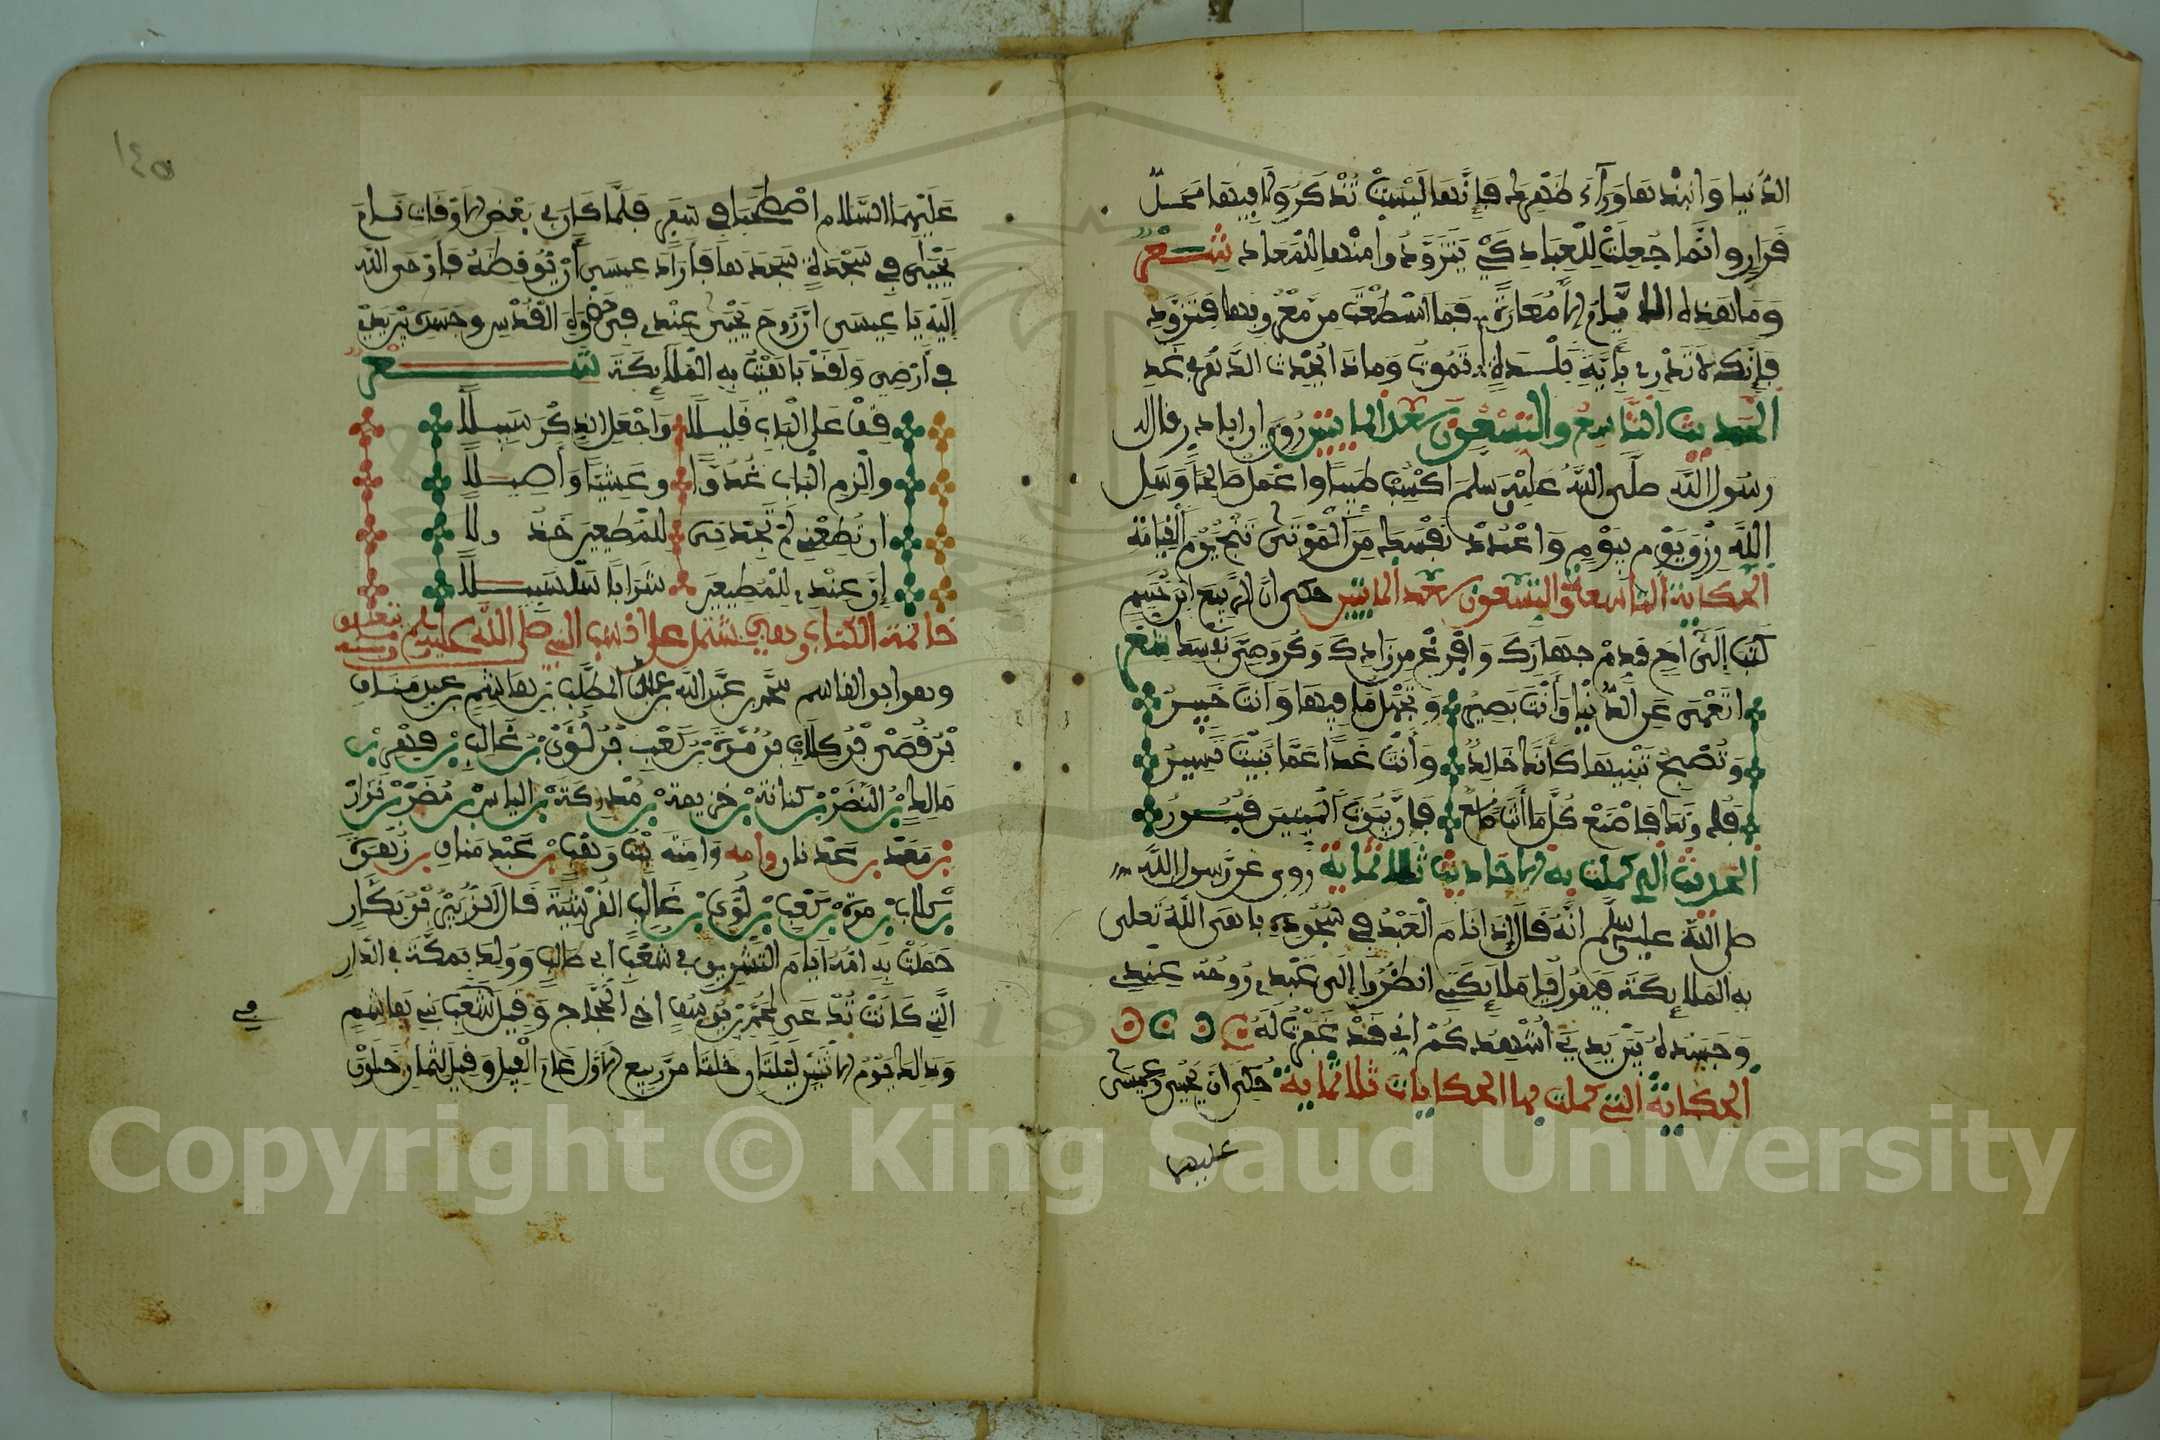 الدُّنيا وانبذها وراء ظهرك فإنها ليست بدار ولا فيها محل
قرار وانما جعلت للعباد كي يتزودوا منها للمعاد شعر
وما هذه الايام الا معارة فما اسطعت من معروفها فتزود
فإنك لا تدري بأية بلدة تموت وما ذا يحدث الدهر في غد
الحديث التاسع والتسعون بعد المايتين روي ان ابا ذر قال
رسول الله صلى الله عليه وسلم اكسب طيبا واعمل صالحا وسل
الله رزق يوم بيوم واعدد نفسك من الموتى تنج يوم القيامة
الحكاية التاسعة والتسعون بعد المايتين حكي ان الربيع ابن خيثم
كتب إلى اخ قدم جهازك وافرغ من زادك وكن وصي نفسك شعر
اتعمى عن الدنيا وأنت بصير وتجهل ما فيها وأنت خبير
وتصبح تبنيها كأنك خالد وأنت غدا عما بنيت تسير
فلك وندا فاصنع كل ما أنت صانع فإن بيوت الميتين قبور
الحديث الذي كملت به الاحاديث ثلاثماية روي عن رسول الله
صلى الله عليه وسلم أنه قال إذا نام العبد في سجوده باهى الله تعلى
به الملايكة فيقول يا ملايكتي انظروا إلى عبدي روحه عندي
وجسده بين يدي أشهدكم اني قد غفرت له
الحكاية التي كملت بها الحكايات ثلاثماية حكي ان يحيى وعيسى
عليهما
١٤٥
عليهما السلام اصطحبا في سفر فلما كان في بعض الاوقات نام
يحيى في سجدة سجدها فأراد عيسى أن يوقظه فأوحى الله
إليه يا عيسى ان روح يحيى عندي في حضرة القدس وجسده بين يدي
في أرضي ولقد باهيت به الملايكة شعر
قف على الباب قليلا واجعل الذكر سبيلا
والزم الباب غدوا وعشيا وأصيلا
ان تطعني لم تجدني للمطيعين خذولا
إن عندي للمطيعين شرابا سلسبيلا
خاتمة الكتاب وهي تشتمل على نسب النبي صلى الله عليه وسلم
وهو ابو القاسم محمد بن عبد الله بن عبد المطلب بن هاشم بن عبد مناف
بن قصي بن كلاب بن مرة بن كعب بن لؤي بن غالب بن فهر بن
مالك بن النضر بن كنانة بن خزيمة بن مدركة بن الياس بن مضر بن نزار
بن معد بن عدنان وامه وامنة بنت وهب بن عبد مناف بن زهرة
بن كلاب بن مرة بن كعب بن لؤي بن غالب القرشية قال الزبير بن بكار
حملت به امه أيام التشريق في شعب أبي طالب وولد بمكة في الدار
التي كانت تدعى لمحمد بن يوسف اخي الحجاج وقيل شعب بني هاشم
وذلك يوم الاثنين لليلتان خلتا من ربيع الاول عام الفيل وقيل لثمان خلون